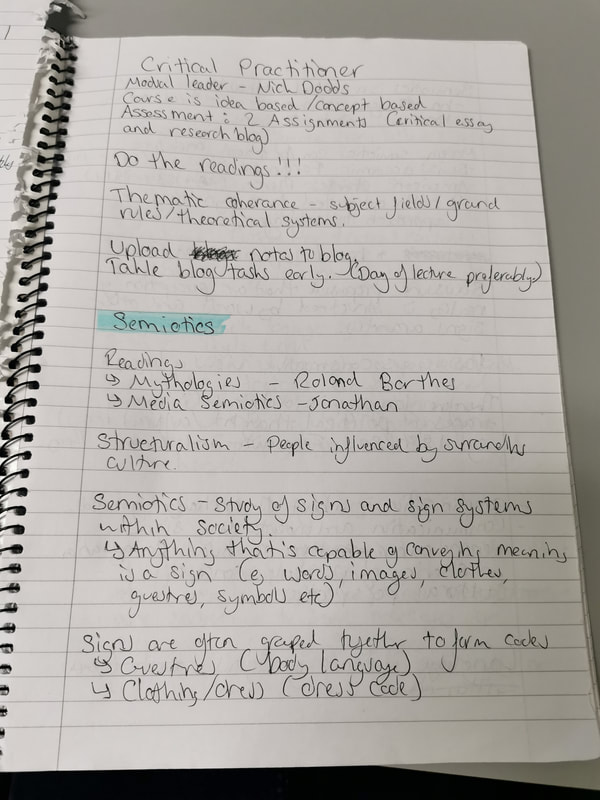 Critical Practitioner
Modual leader - Nick Dodds
Course is idea based / concept based
Assessment : 2 Assignments (critical essay
and research blog)
Do the readings!!!
Thematic coherance - subject fields / grand
rules / theoretical systems.
Upload notes to blog.
Table blog tasks early. (Day of lecture preferably)
Semiotics
Readings
↳ Mythologies - Roland Barthes
↳ Media Semiotics - Jonathan
Structuralism - People influenced by
culture.
Semiotics - Study of signs and sign systems
within society.
↳ Anything that's capable of conveying meaning
is a sign (eg words, images, clothes,
guestres, symbols etc)
Signs are often grouped together to form codes
↳ Guestres (body language)
↳ Clothing/dress (dress code)